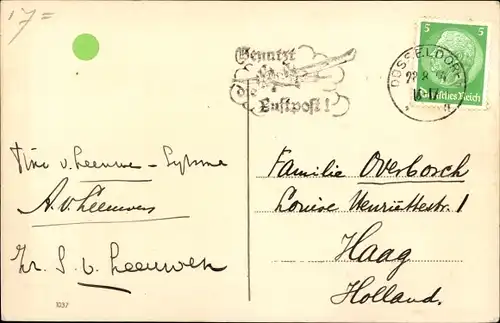 17=
Benutzt
Luftpost!
DÜSSELDORF
5 5
Deutsches Reich
Tine v. Leeuwen-
A. v. Leeuwen
S. v. Leeuwen
Familie Overbosch
Louise Henriëttestr. 1
Haag
Holland.
1037